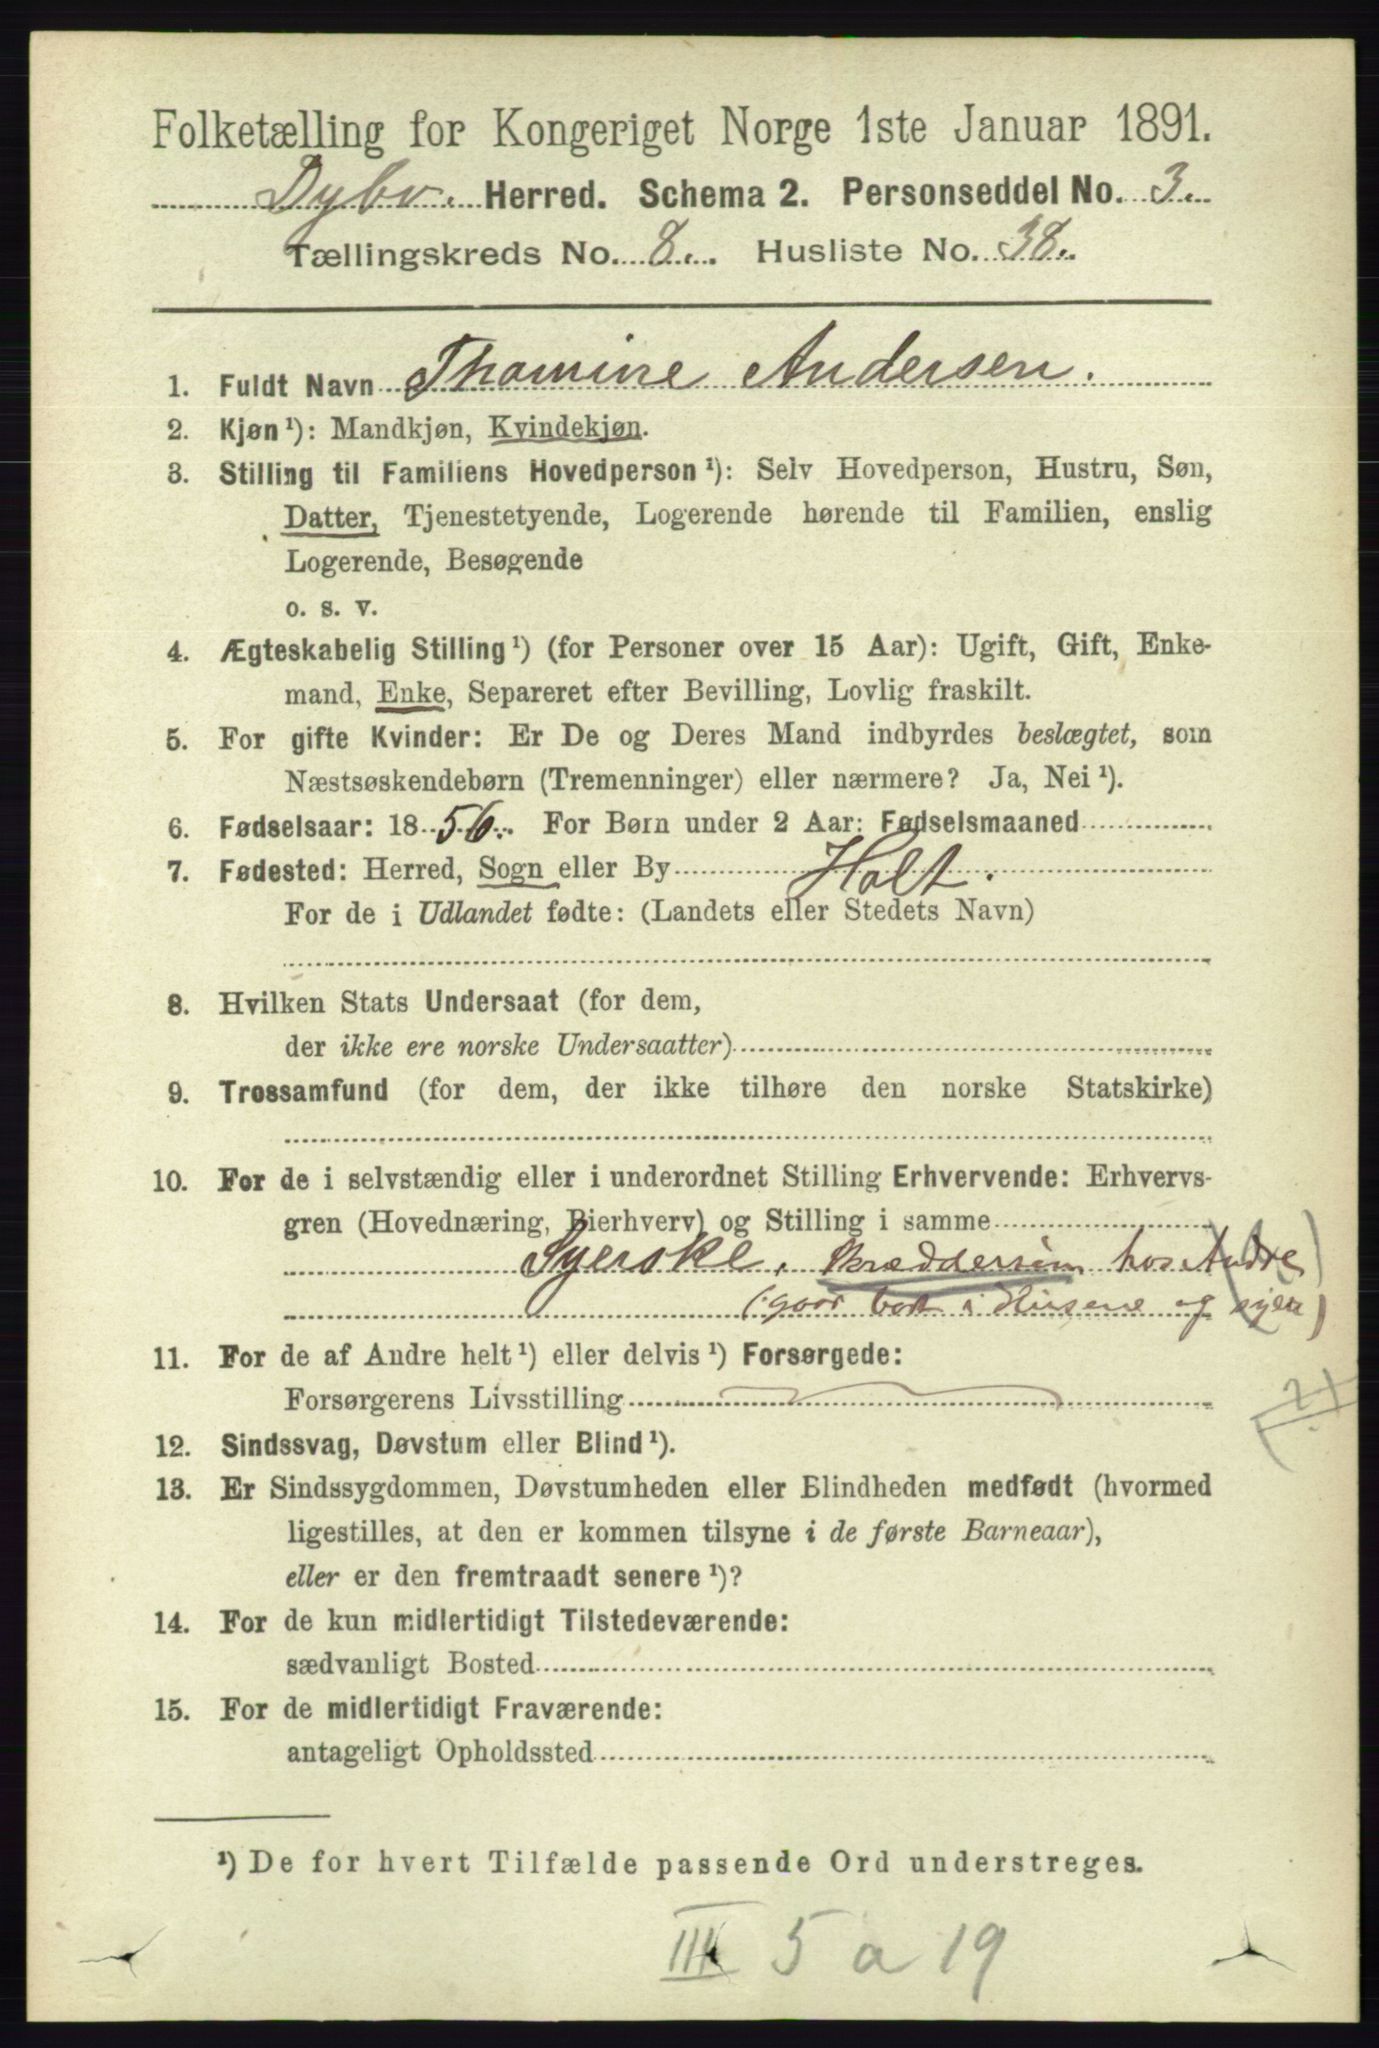 Folketælling for Kongeriget Norge 1ste Januar 1891.
Dybv. Herred. Schema 2. Personseddel No. 3.
Tællingskreds No. 8. Husliste No. 38.
1. Fuldt Navn Thomine Andersen.
2. Kjøn¹): Mandkjøn, Kvindekjøn.
3. Stilling til Familiens Hovedperson¹): Selv Hovedperson, Hustru, Søn,
Datter, Tjenestetyende, Logerende hørende til Familien, enslig
Logerende, Besøgende
o. s. v.
4. Ægteskabelig Stilling¹) (for Personer over 15 Aar): Ugift, Gift, Enke-
mand, Enke, Separeret efter Bevilling, Lovlig fraskilt.
5. For gifte Kvinder: Er De og Deres Mand indbyrdes beslægtet, som
Næstsøskendebørn (Tremenninger) eller nærmere? Ja, Nei¹).
6. Fødselsaar: 1856. For Børn under 2 Aar: Fødselsmaaned
7. Fødested: Herred, Sogn eller By Holt.
For de i Udlandet fødte: (Landets eller Stedets Navn)
8. Hvilken Stats Undersaat (for dem,
der ikke ere norske Undersaatter)
9. Trossamfund (for dem, der ikke tilhøre den norske Statskirke)
10. For de i selvstændig eller i underordnet Stilling Erhvervende: Erhvervs-
gren (Hovednæring, Bierhverv) og Stilling i samme
Syerske, skræddersøm hos Andre
(gaar bort i Husene og syer)
11. For de af Andre helt¹) eller delvis¹) Forsørgede:
Forsørgerens Livsstilling
(?)
12. Sindssvag, Døvstum eller Blind¹).
13. Er Sindssygdommen, Døvstumheden eller Blindheden medfødt (hvormed
ligestilles, at den er kommen tilsyne i de første Barneaar),
eller er den fremtraadt senere¹)?
14. For de kun midlertidigt Tilstedeværende:
sædvanligt Bosted
15. For de midlertidigt Fraværende:
antageligt Opholdssted
¹) De for hvert Tilfælde passende Ord understreges.
III 5 a 19